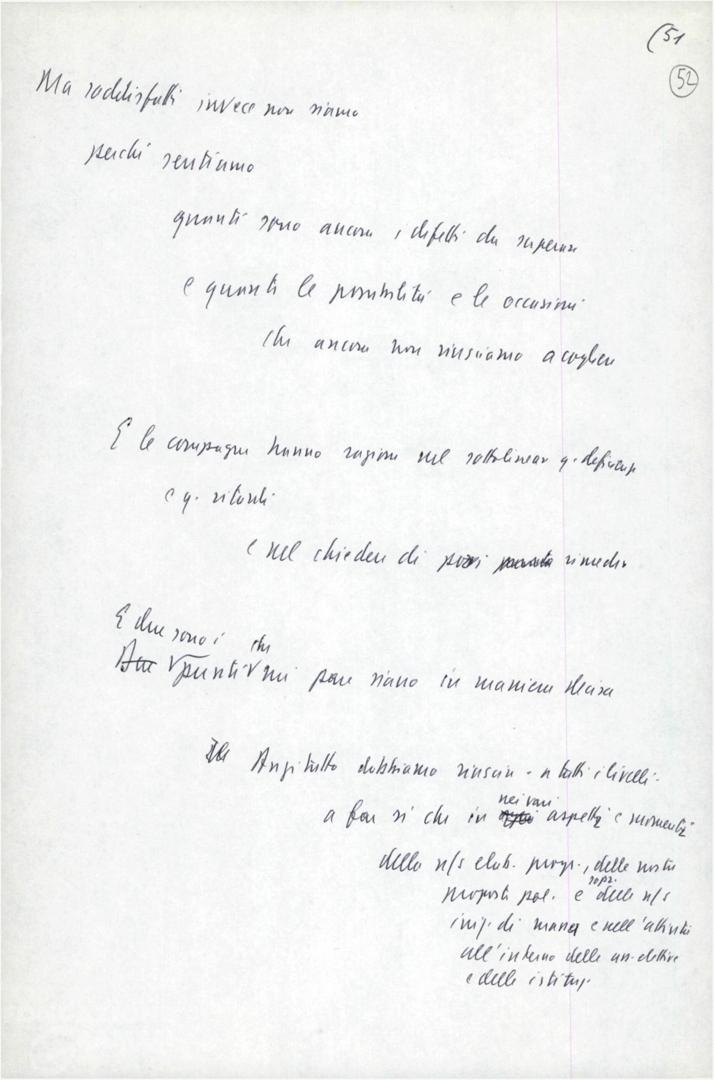 (51
52
Ma soddisfatti invece non siamo
perché sentiamo
quanti sono ancora i difetti da superare
e quanti le possibilità e le occasioni
che ancora non riusciamo a cogliere
E le compagne hanno ragione nel sottolineare q.
e q. ritardi
e nel chiedere di porvi rimedio
E due sono i che
Due punti mi pare siano in maniera decisa
Anzitutto dobbiamo riuscire - a tutti i livelli -
nei vari
a far sì che in aspetti e momenti
della n/s elab. progr., delle nostre
sopr.
proposte pol. e delle n/s
iniz. di massa e nell'attività
all'interno delle elettive
e delle istituz.